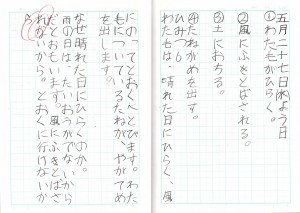 五月二十七日水よう日
①わた毛がひらく。
②風にふきとばされる。
③土におちる。
④たねがめを出す。
ひみつ6
わた毛は、晴れた日にひらく、風
にのってとおくへとびます。わた
もについているたねが、やがてめ
を出します。
なぜ晴れた日にひらくのか。
雨の日は、たいようがでないから
だとおもいます。風にふきとばさ
れないから。とおくに行けないか
ら